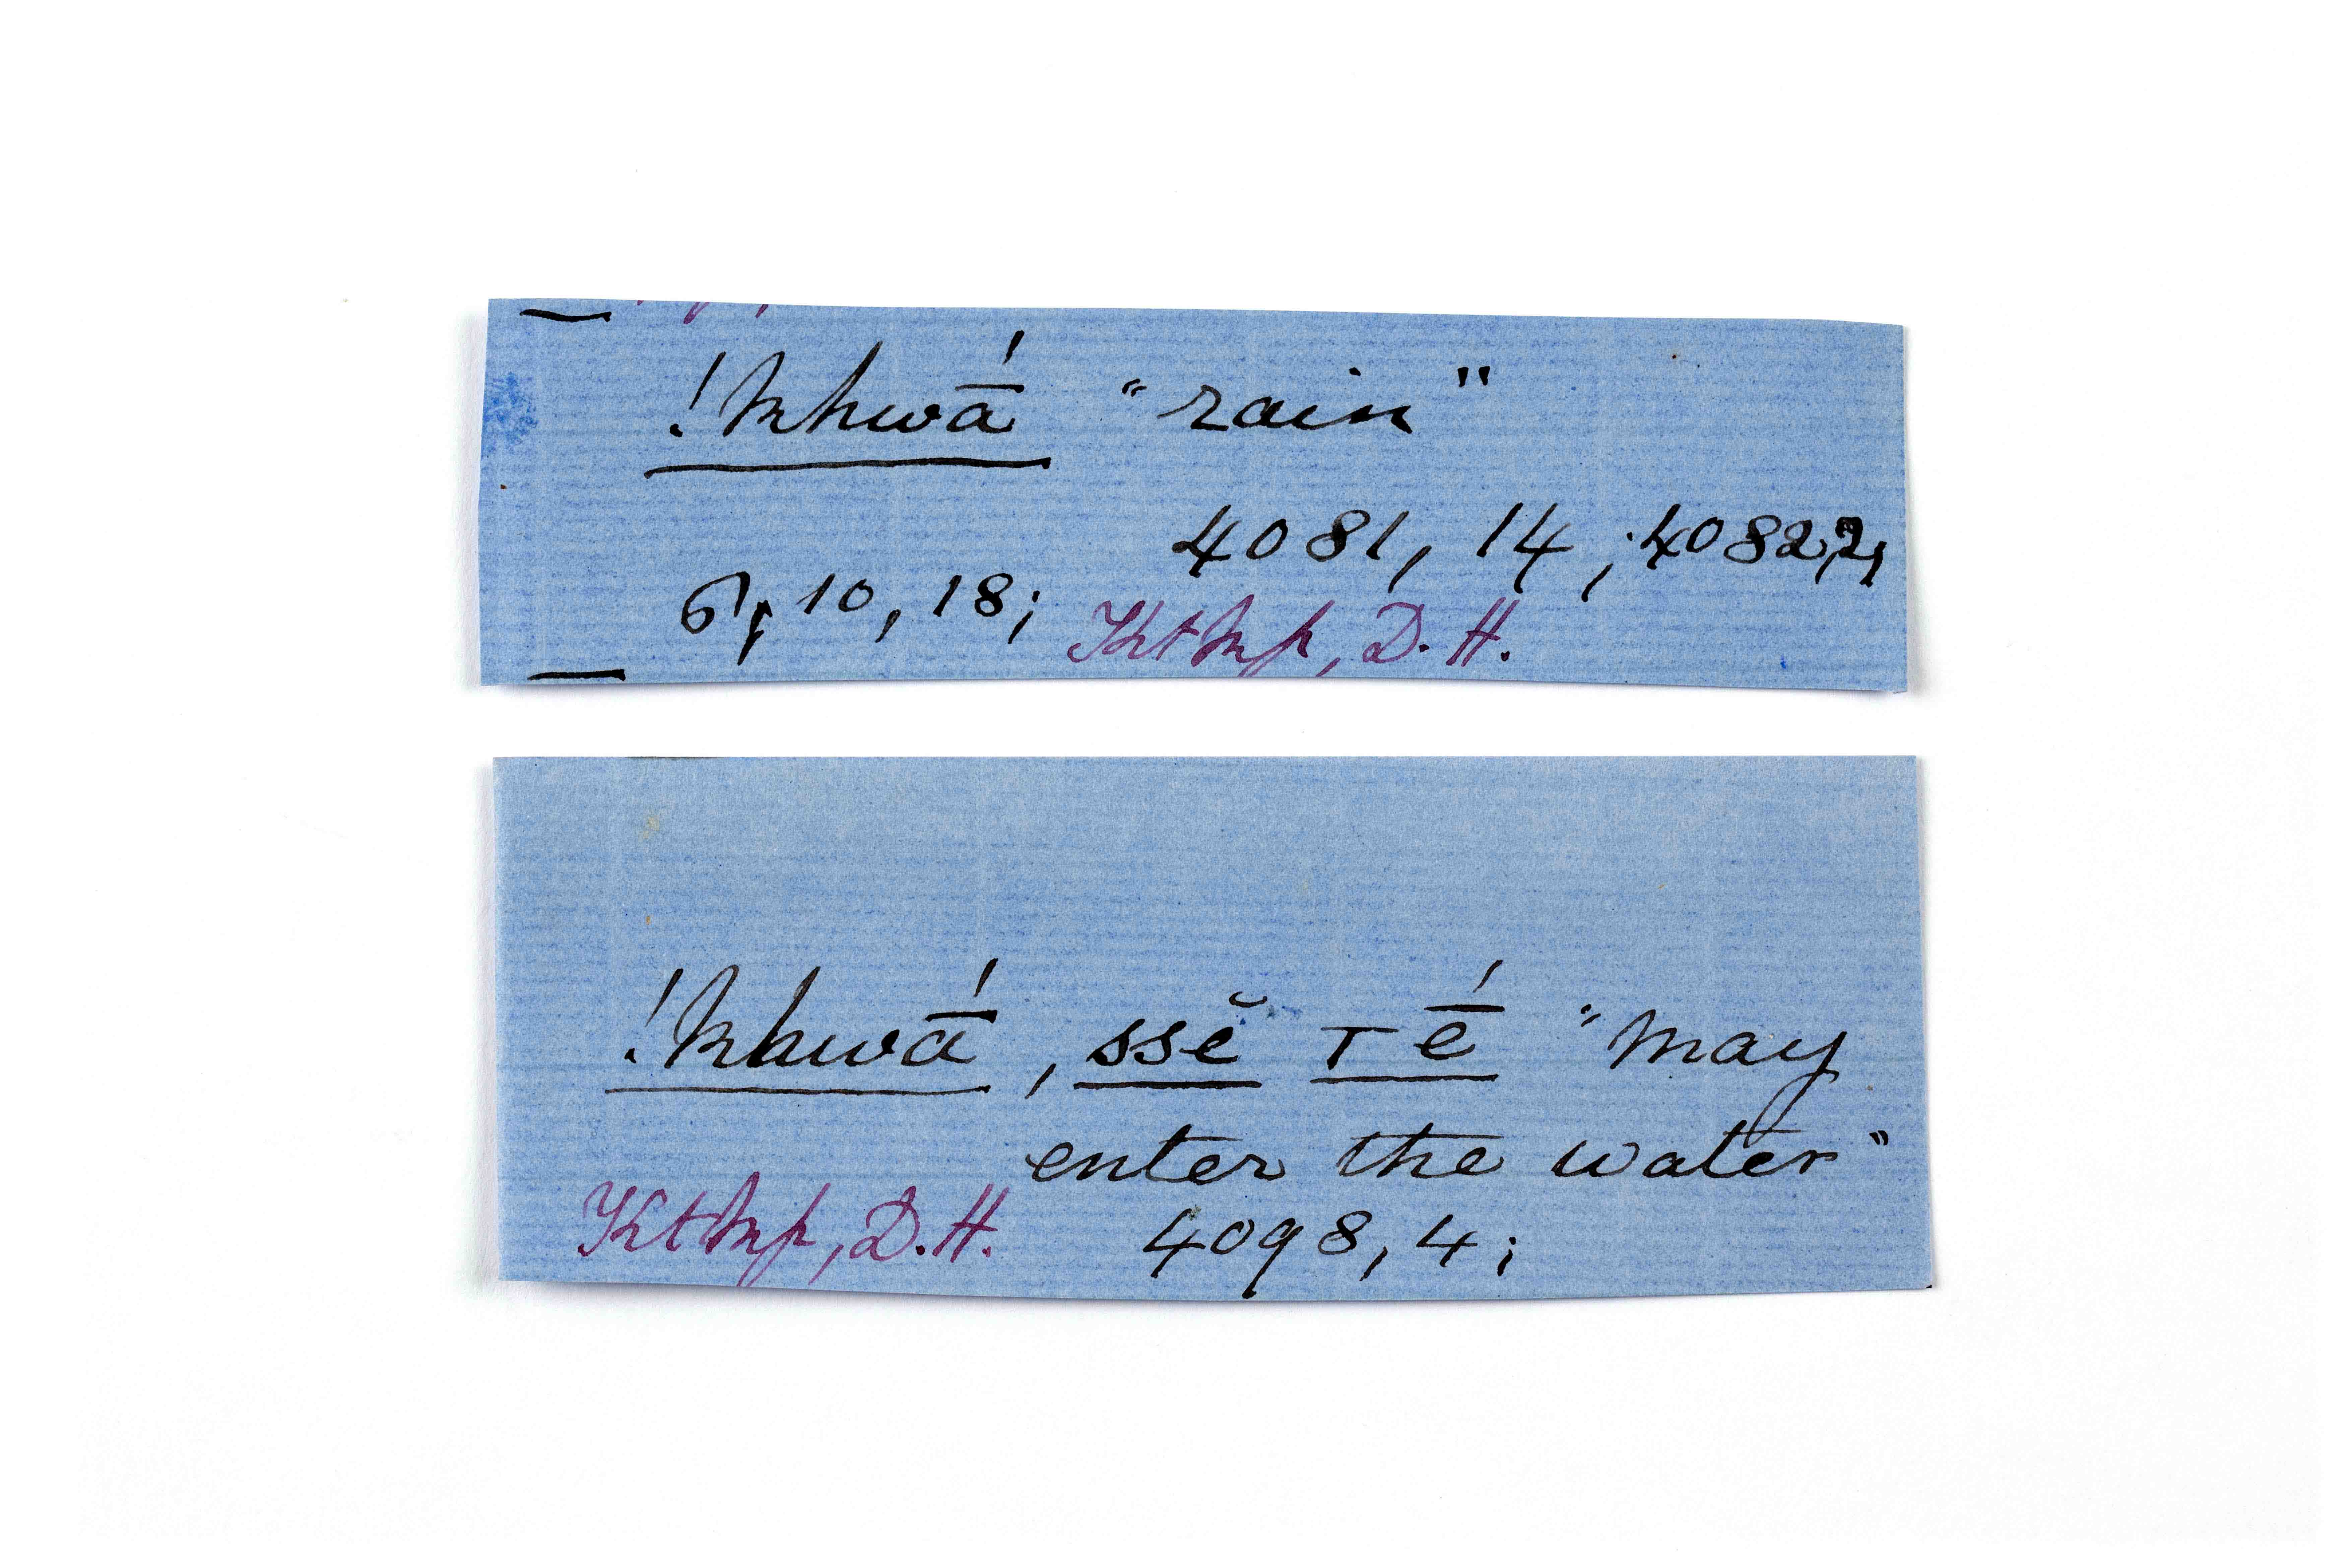 !khwā́ "rain"
4081, 14; 4082, 2,
6, 10, 18; Ktkkp, D.H.
!khwā́, ssĕ Tḗ "may
enter the water"
Ktkkp, D.H. 4098, 4;